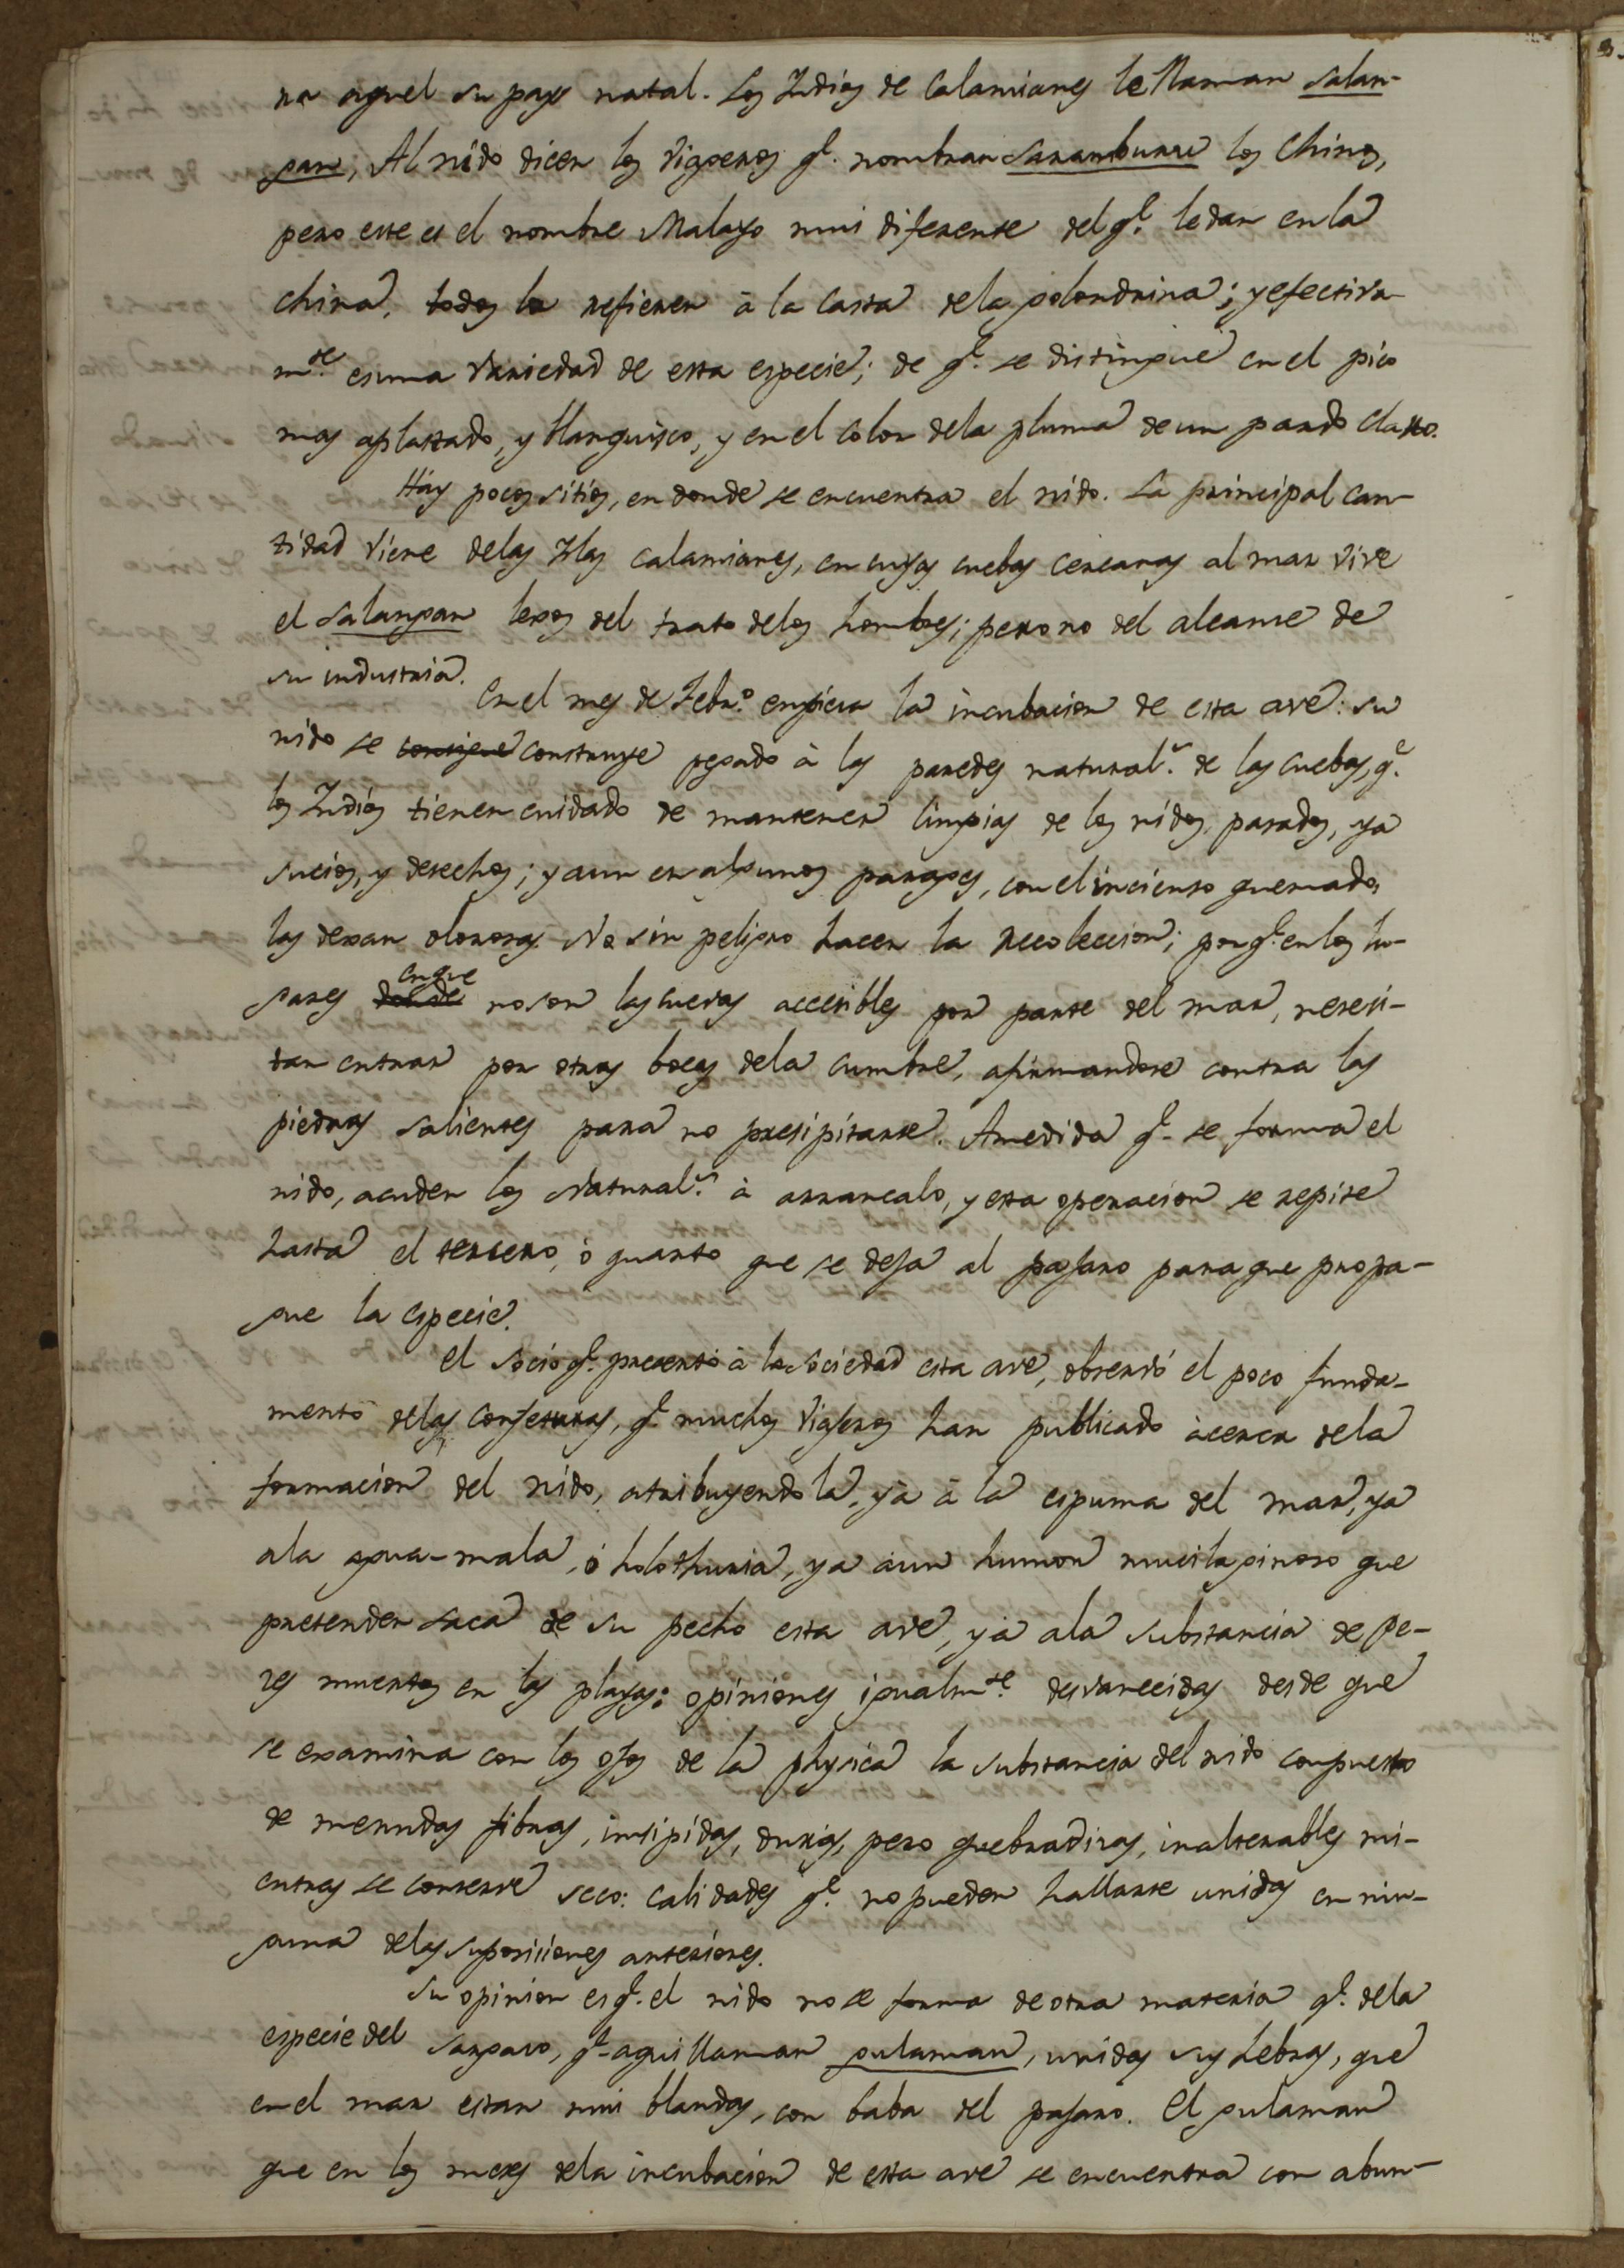 na aquel su pays natal. Los Indios de Calamianes le llaman salan-
gan; Al nido dicen los viageros q.e nombran saranburun los Chinos,
pero este es el nombre Malayo mui diferente del q.e le dan en la
china. todos lo refieren à la casta de la golondrina; y efectiva-
m.te es una variedad de esta especie; de q.e se distingue en el pico
mas aplastado, y blanquisco, y en el color de la pluma de un pardo claro.
Hay pocos sitios, en donde se encuentra el nido. La principal can-
tidad viene de las Islas calamianes, en cuyas cuebas cercanas al mar vive
el salangan lexos del trato de los hombres; pero no del alcanse de
su industria.
En el mes de Febr.o empiesa la incubacion de esta ave: su
nido se consigue construye pegado à las paredes natural.s de las cuebas, q.e
los Indios tienen cuidado de mantener limpias de los nidos pasados, ya
sucios, y desechos; y aun en algunos parages, con el incienso quemado,
las dexan olorosas. No sin peligro hacen la recoleccion; porq.e en los lu-
gares donde en que no son las cuevas accesibles por parte del mar, nesesi-
tan entrar por otras bocas de la cumbre, afirmandose contra las
piedras salientes para no presipitarse. Amedida q.e se forma el
nido, acuden los Natural.s à arrancalo, y esta operacion se repite
hasta el tersero, ò quarto que se deja al pajaro para que propa-
gue la especie.
El socio q.e presentó à la sociedad esta ave, observó el poco funda-
mento de las conjeturas, q.e muchos viageros han publicado àcerca de la
formacion del nido, atribuyendo la, yà à la espuma del mar, ya
ala agua-mala, ò holothuria, ya àun humor mucilaginoso que
pretenden saca de su pecho esta ave, yà ala substancia de pe-
ces muertos en las playas: opiniones igualm.te desvanecidas desde que
se examina con los ojos de la physica la substancia del nido compuesto
de menudas fibras, insipidas, duras, pero quebradisas, inalterables mi-
entras se conserve seco: calidades q.e no pueden hallarse unidas en nin-
guna de las suposiciones anteriores.
Su opinion es q.e el nido no se forma de otra materia q.e de la
especie del sargaso, q.e aqui llaman gulaman, unidas sus hebras, que
en el mar estan mui blandas, con baba del pajaro. El gulaman
que en los meses de la incubacion de esta ave se encuentra con abun-